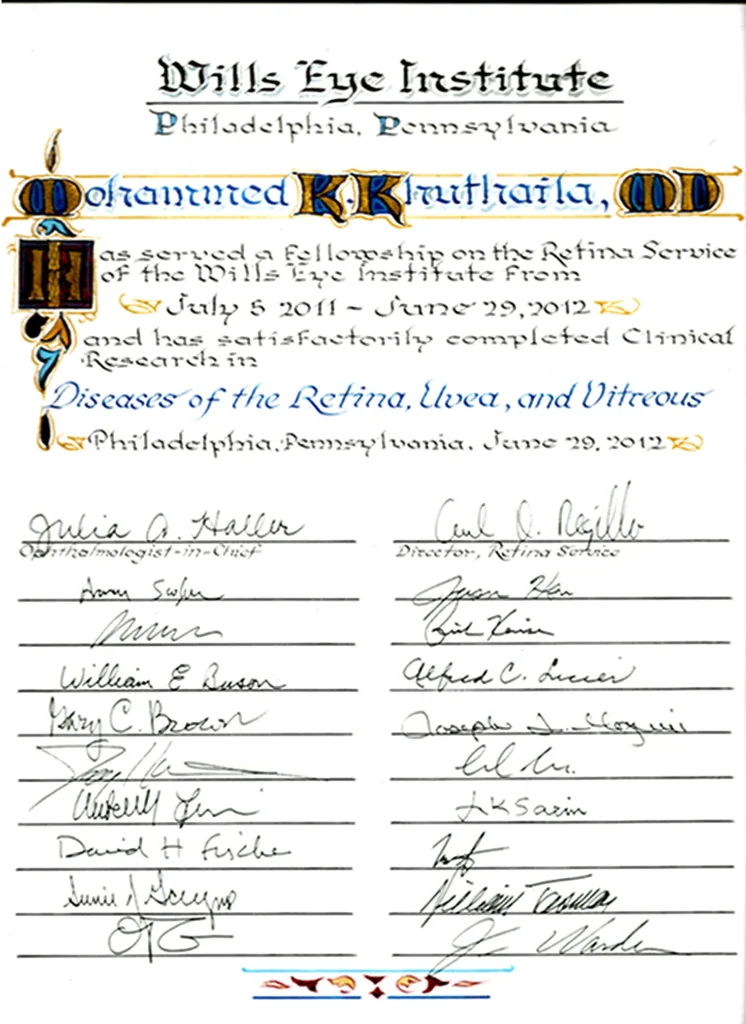 Wills Eye Institute
Philadelphia, Pennsylvania
Mohammed K. Khuthaila, MD
Has served a Fellowship on the Retina Service
of the Wills Eye Institute From
July 5 2011 – June 29, 2012
and has satisfactorily completed Clinical
Research in
Diseases of the Retina, Uvea, and Vitreous
Philadelphia, Pennsylvania, June 29, 2012
Julia A. Haller Carl D. Regillo
Ophthalmologist-in-Chief Director, Retina Service
William E Alfred C.
Gary C. Brown Joseph I.
David H Fische LK Sarin
William Tasman